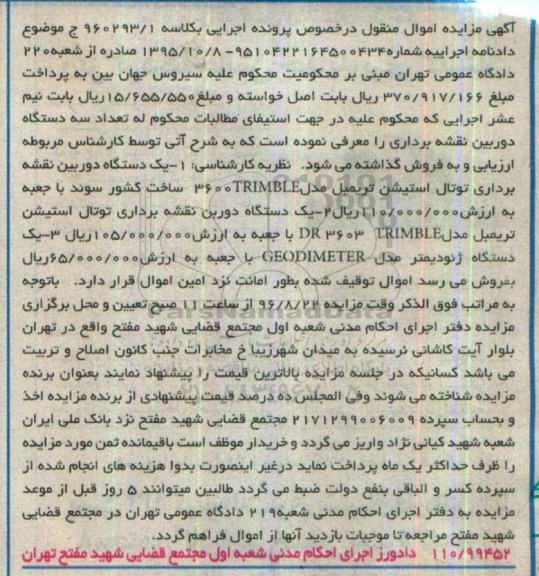 آگهی مزایده اموال منقول درخصوص پرونده اجرایی بکلاسه ۹۶۰۲۹۳/۱ ج موضوع
دادنامه اجراییه شماره۹۵۱۰۴۲۲۱۶۴۵۰۰۴۳۴- ۱۳۹۵/۱۰/۸ صادره از شعبه۲۲۰
دادگاه عمومی تهران مبنی بر محکومیت محکوم علیه سیروس جهان بین به پرداخت
مبلغ ۳۷۰/۹۱۷/۱۶۶ ریال بابت اصل خواسته و مبلغ۱۵/۶۵۵/۵۵۰ریال بابت نیم
عشر اجرایی که محکوم علیه در جهت استیفای مطالبات محکوم له تعداد سه دستگاه
دوربین نقشه برداری را معرفی نموده است که به شرح آتی توسط کارشناس مربوطه
ارزیابی و به فروش گذاشته می شود. نظریه کارشناسی: ۱-یک دستگاه دوربین نقشه
برداری توتال استیشن تریمبل مدلTRIMBLE۳۶۰۰ ساخت کشور سوئد با جعبه
به ارزش۱۱۰/۰۰۰/۰۰۰ریال۲-یک دستگاه دوربن نقشه برداری توتال استیشن
تریمبل مدلTRIMBLE DR ۳۶۰۳ با جعبه به ارزش۱۰۵/۰۰۰/۰۰۰ریال ۳-یک
دستگاه ژئودیمتر مدل GEODIMETER با جعبه به ارزش۶۵/۰۰۰/۰۰۰ریال
بفروش می رسد اموال توقیف شده بطور امانت نزد امین اموال قرار دارد. باتوجه
به مراتب فوق الذکر وقت مزایده ۹۶/۸/۲۲ از ساعت ۱۱ صبح تعیین و محل برگزاری
مزایده دفتر اجرای احکام مدنی شعبه اول مجتمع قضایی شهید مفتح واقع در تهران
بلوار آیت کاشانی نرسیده به میدان شهرزیبا خ مخابرات جنب کانون اصلاح و تربیت
می باشد کسانیکه در جلسه مزایده بالاترین قیمت را پیشنهاد نمایند بعنوان برنده
مزایده شناخته می شوند وفی المجلس ده درصد قیمت پیشنهادی از برنده مزایده اخذ
و بحساب سپرده ۲۱۷۱۲۹۹۰۰۶۰۰۹ مجتمع قضایی شهید مفتح نزد بانک ملی ایران
شعبه شهید کیانی نژاد واریز می گردد و خریدار موظف است باقیمانده ثمن مورد مزایده
را ظرف حداکثر یک ماه پرداخت نماید درغیر اینصورت بدوا هزینه های انجام شده از
سپرده کسر و الباقی بنفع دولت ضبط می گردد طالبین میتوانند ۵ روز قبل از موعد
مزایده به دفتر اجرای احکام مدنی شعبه۲۱۹ دادگاه عمومی تهران در مجتمع قضایی
شهید مفتح مراجعه تا موجبات بازدید آنها از اموال فراهم گردد.
۱۱۰/۹۹۴۵۲ دادورز اجرای احکام مدنی شعبه اول مجتمع قضایی شهید مفتح تهران